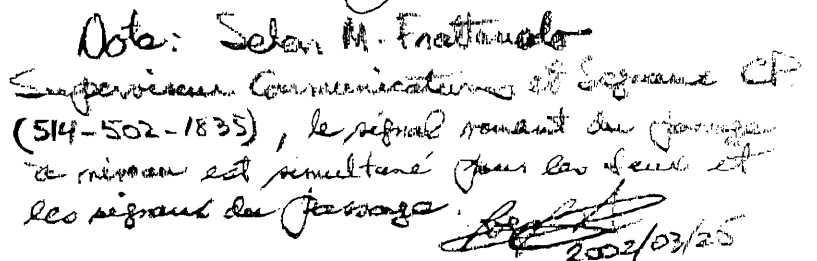 Note: Selon M. Frattaruolo
Superviseur Communications et Signaux CP
(514-502-1835), le signal venant du passage
à niveau est simultané pour les feux et
les signaux du passage.
2002/03/26